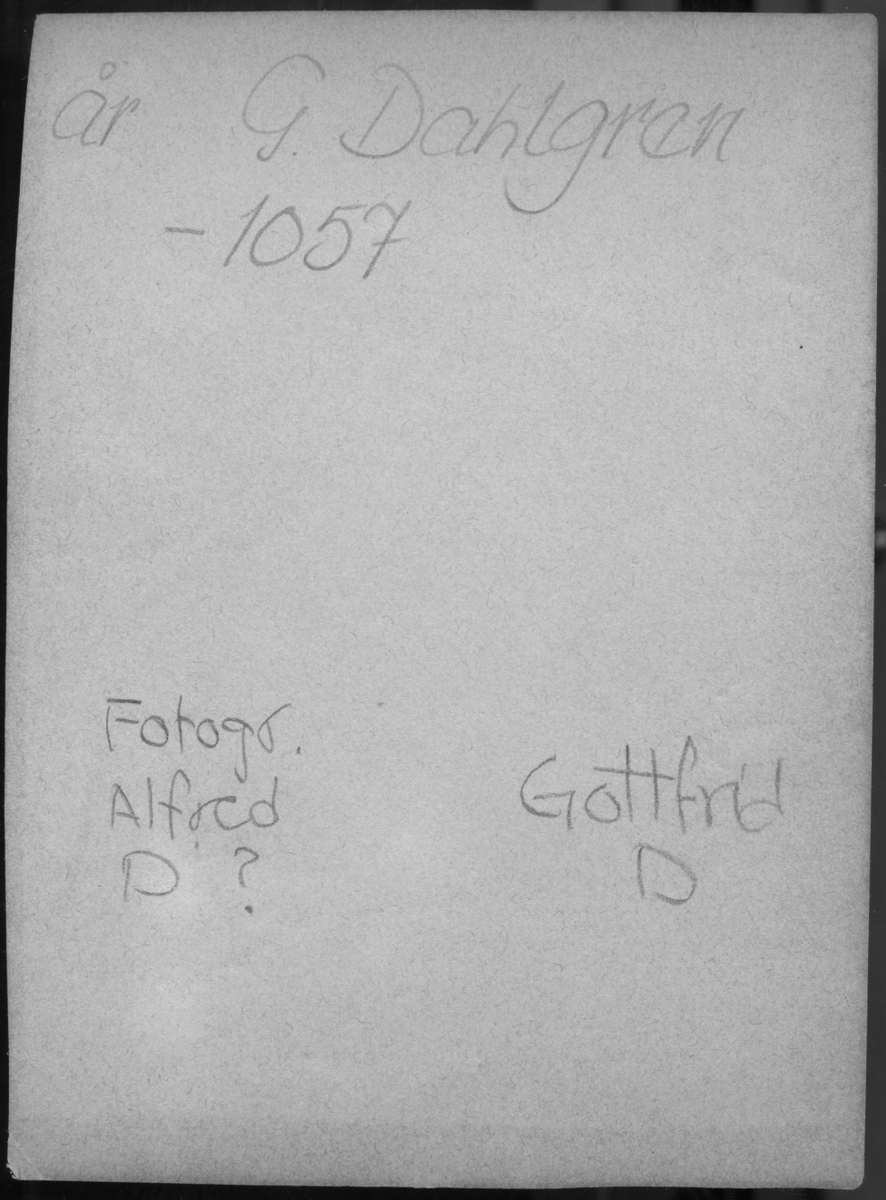 år G. Dahlgren
- 1057
Fotogr.
Alfred
D ?
Gottfrid
D